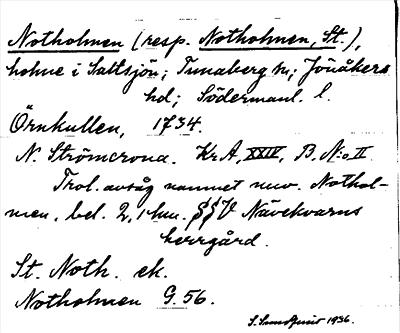 Notholmen (resp. Notholmen, St.),
holme i Saltsjön; Tunaberg sn; Jönåkers
hd; Södermanl. l.
Örnkullen, 1734.
N. Strömcrona. Kr.A, XXIV, B. N:o II
Trol. avsåg namnet nuv. Nothol-
men, bel. 2,1 km. §§V Nävekvarns
herrgård.
St. Noth. ek.
Notholmen G. 56.
S. Sundquist 1936.